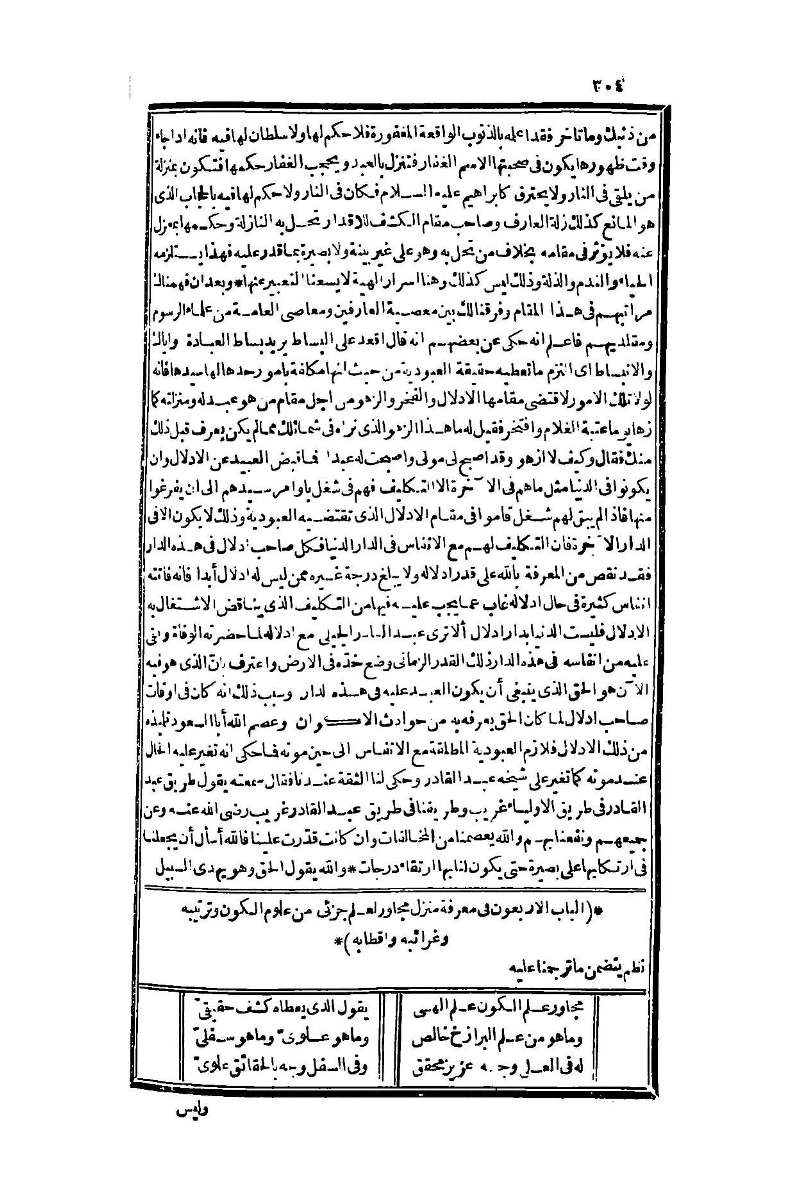 ٣٠٤
من ذنبك وما تأخر فقد أعلمه بالذنوب الواقعة المغفورة فلا حكم لها ولا سلطان لها فيه فانه اذا جاء
وقت ظهورها يكون في صحبتها الاسم الغفار فتنزل بالعبد ويحجب الغفار حكمها فتكون بمنزلة
من يلقى في النار ولا يحترق كابراهيم عليه السلام فكان في النار ولا حكم لها فيه بالحجاب الذى
هو المانع كذلك زلة العارف وصاحب مقام الكشف للاقدار تحل به النازلة وحكمها بمعزل
عنه فلا يؤثر في مقامه بخلاف من تحل به وهو على غير بينة ولا بصيرة بما قدر عليه فهذا يستلزمه
الحياء والندم والذلة وذلك ليس كذلك وهنا اسرار الهية لا يسعنا التعبير عنها * وبعد ان فهمناك
مراتبهم في هذا المقام وفرقنا لك بين معصية العارفين ومعاصى العامة من علماء الرسوم
ومقلديهم فاعلم انه حكى عن بعضهم انه قال اقعد على البساط يريد بساط العبادة واياك
والانبساط اى التزم ما تعطيه حقيقة العبودية من حيث انها مكلفة بأمور حدها لها سيدها فانه
لولا تلك الامور لاقتضى مقامها الادلال والفخر والزهو من اجل مقام من هو عبد له ومنزلته كما
زها يوما عتبة الغلام وافتخر فقيل له ما هذا الزهو الذى نراه في شمائلك مما لم يكن يعرف قبل ذلك
منك فقال وكيف لا ازهو وقد اصبح لى مولى واصبحت له عبدا فما قبض العبيد عن الادلال وان
يكونوا في الدنيا مثل ما هم في الآخرة الا التكليف فهم في شغل باوامر سيدهم الى ان يفرغوا
منها فاذا لم يبق لهم شغل قاموا في مقام الادلال الذى تقتضيه العبودية وذلك لا يكون الا في
الدار الآخرة فان التكليف لهم مع الانفاس في الدار الدنيا فكل صاحب ادلال في هذه الدار
فقد نقص من المعرفة بالله على قدر ادلاله ولا يبلغ درجة غيره ممن ليس له ادلال أبدا فانه فاتته
انفاس كثيرة في حال ادلاله غاب عما يجب عليه فيها من التكليف الذى يناقض الاشتغال به
الادلال فليست الدنيا بدار ادلال ألا ترى عبد القادر الجيلى مع ادلاله لما حضرته الوفاة وبقى
عليه من انفاسه في هذه الدار ذلك القدر الزمانى وضع خده في الارض واعترف بان الذى هو فيه
الآن هو الحق الذى ينبغى أن يكون العبد عليه في هذه الدار وسبب ذلك انه كان في اوقات
صاحب ادلال لما كان الحق يعرفه به من حوادث الاكوان وعصم الله أبا السعود تلميذه
من ذلك الادلال فلازم العبودية المطلقة مع الانفاس الى حين موته فما حكى انه تغير عليه الحال
عند موته كما تغير على شيخه عبد القادر وحكى لنا الثقة عندنا فقال سمعته يقول طريق عبد
القادر في طريق الاولياء غريب وطريقنا في طريق عبد القادر غريب رضى الله عنه وعن
جميعهم ونفعنا بهم والله يعصمنا من المخالفات وان كانت قدرت علينا فالله أسأل أن يجعلنا
في ارتكابها على بصيرة حتى يكون لنا بها ارتقاء درجات * والله يقول الحق وهو يهدى السبيل
*(الباب الاربعون في معرفة منزل مجاور لعلم جزئى من علوم الكون وترتيبه
وغرائبه واقطابه)*
نظم يتضمن ما ترجمنا عليه
مجاور علم الكون علم الهى يقول الذى يعطاه كشف حقيقىّ
وما هو من علم البرازخ خالص وما هو علوىّ وما هو سفلىّ
له في العلى وجه عزيز محقق وفي السفل وجه بالحقائق علوىّ
وليس